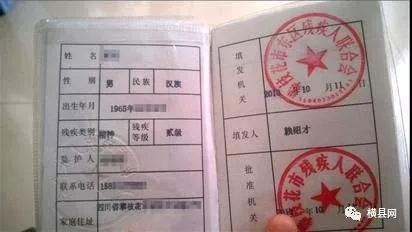 姓 名
性 别 男 民族 汉族
出生年月 1965年
残疾类别 精神 残疾等级 贰级
监护人
联系电话 158
家庭住址 四川省攀枝花
填发机关
攀枝花市东区残疾人联合会
10月11日
填发人 赖绍才
批准机关
枝花市残疾人联合会
10月
横县网